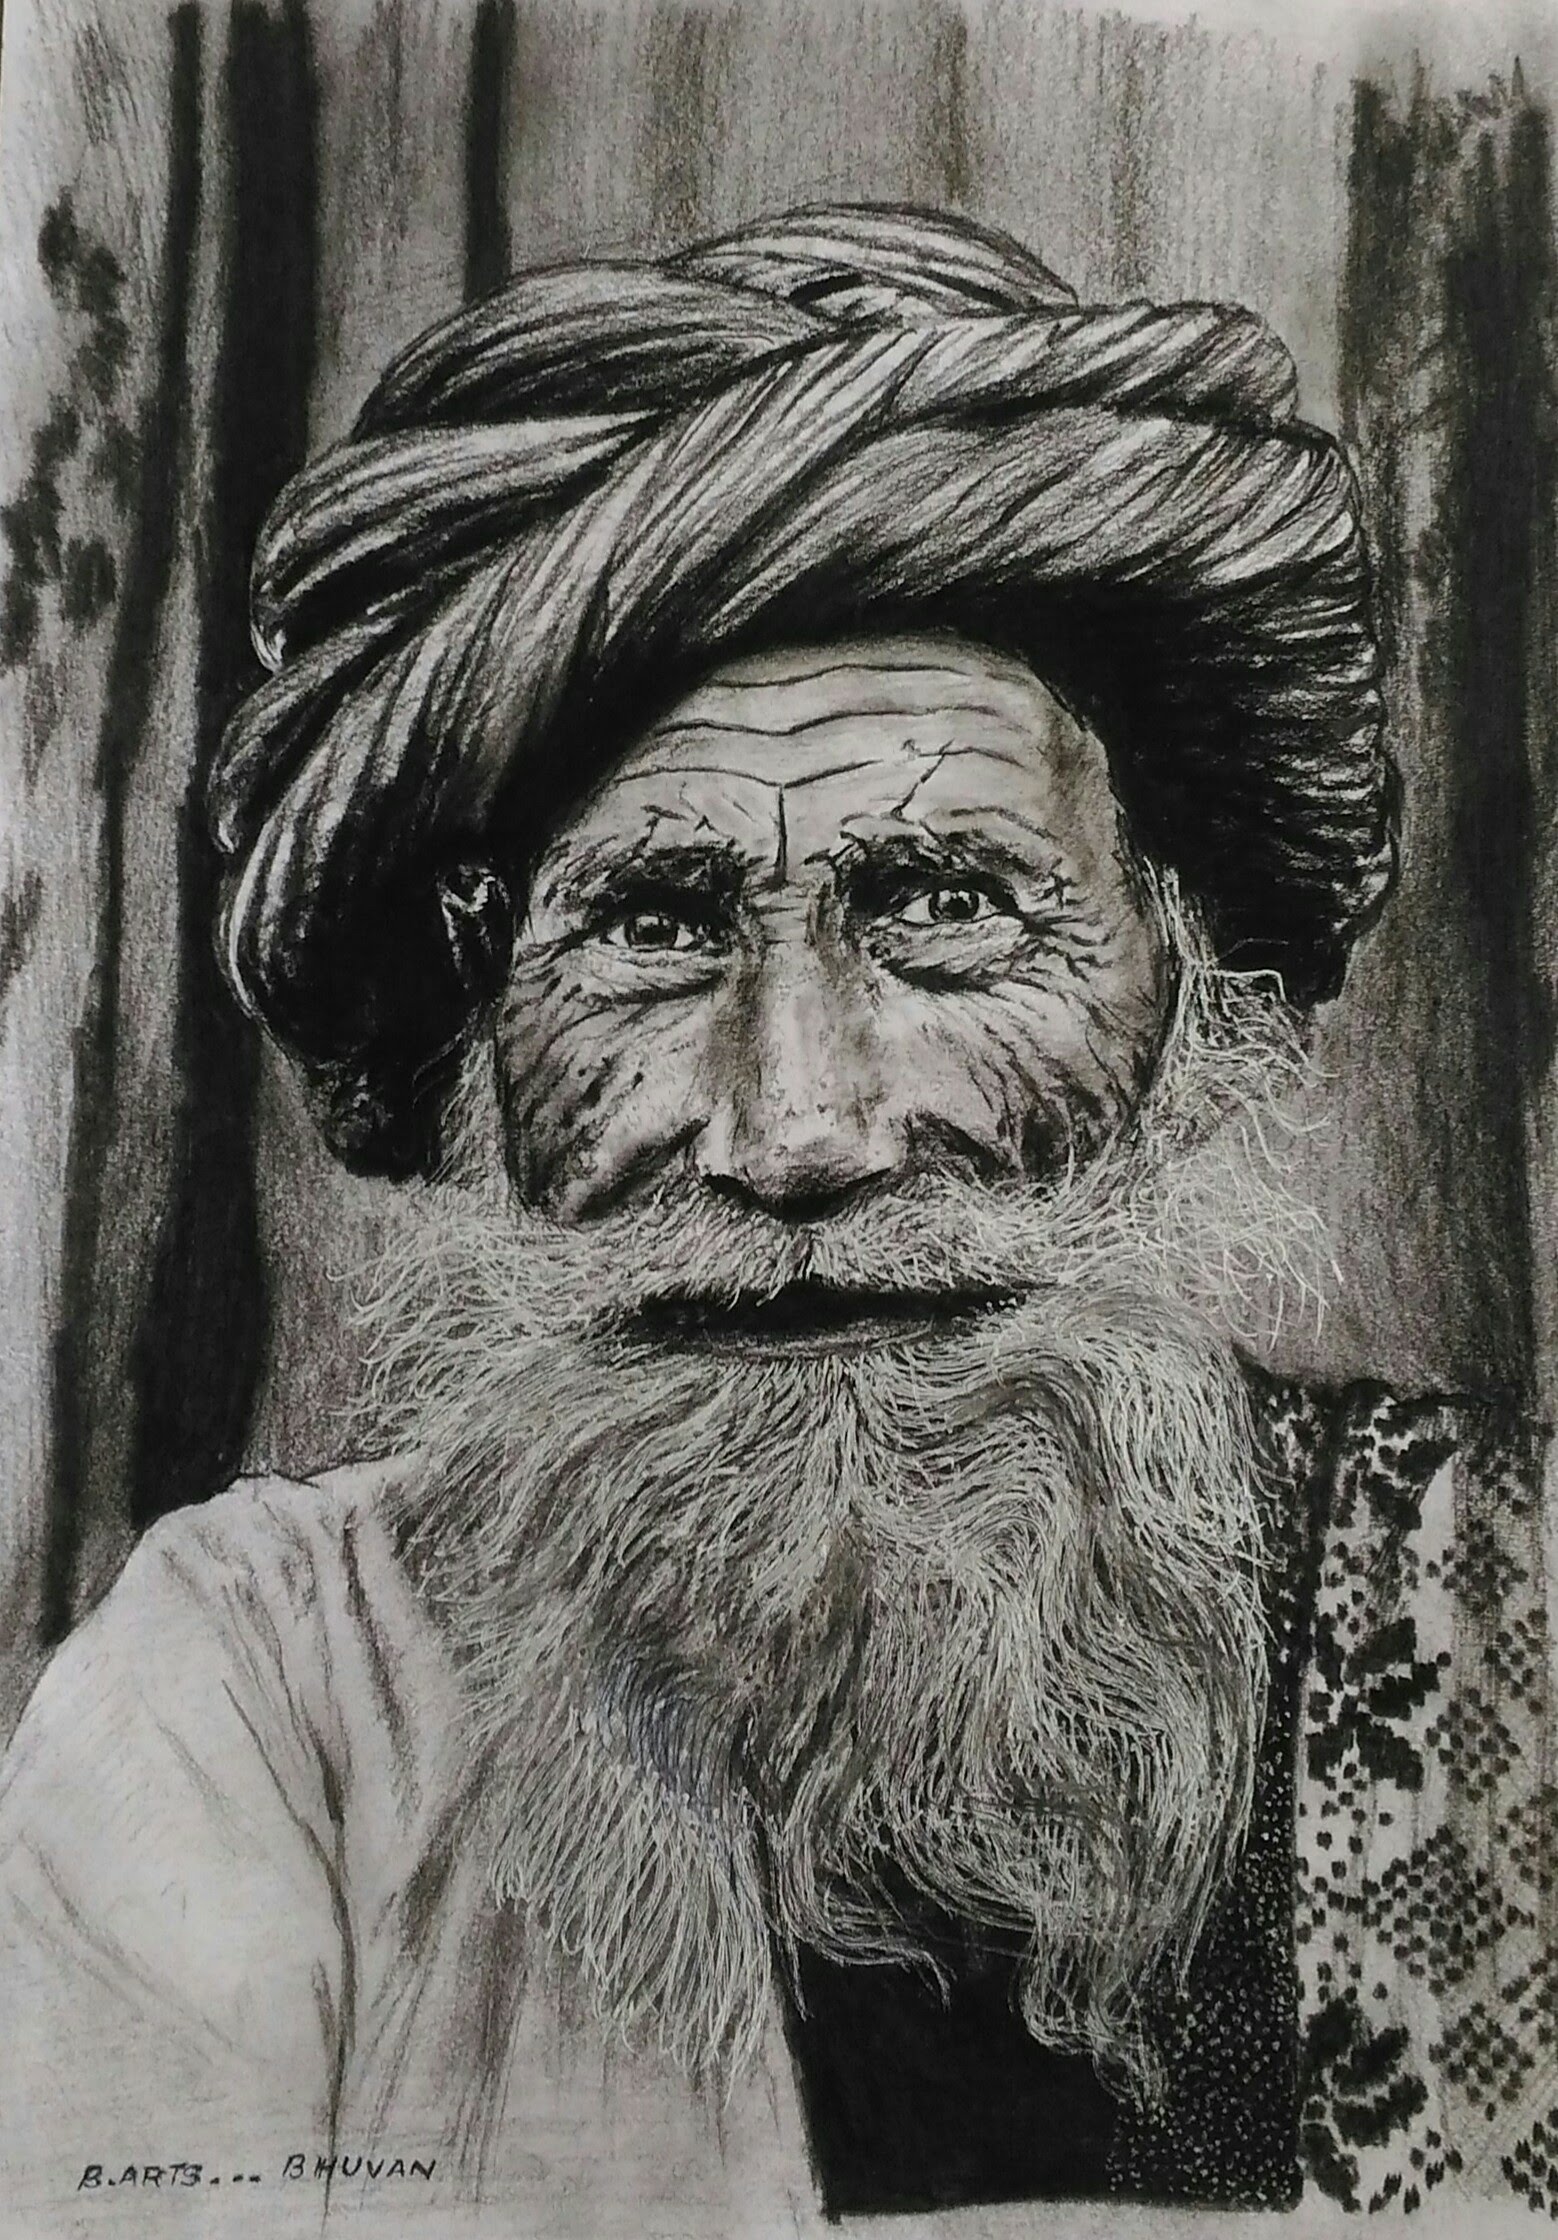 B.ARTS... BHUVAN